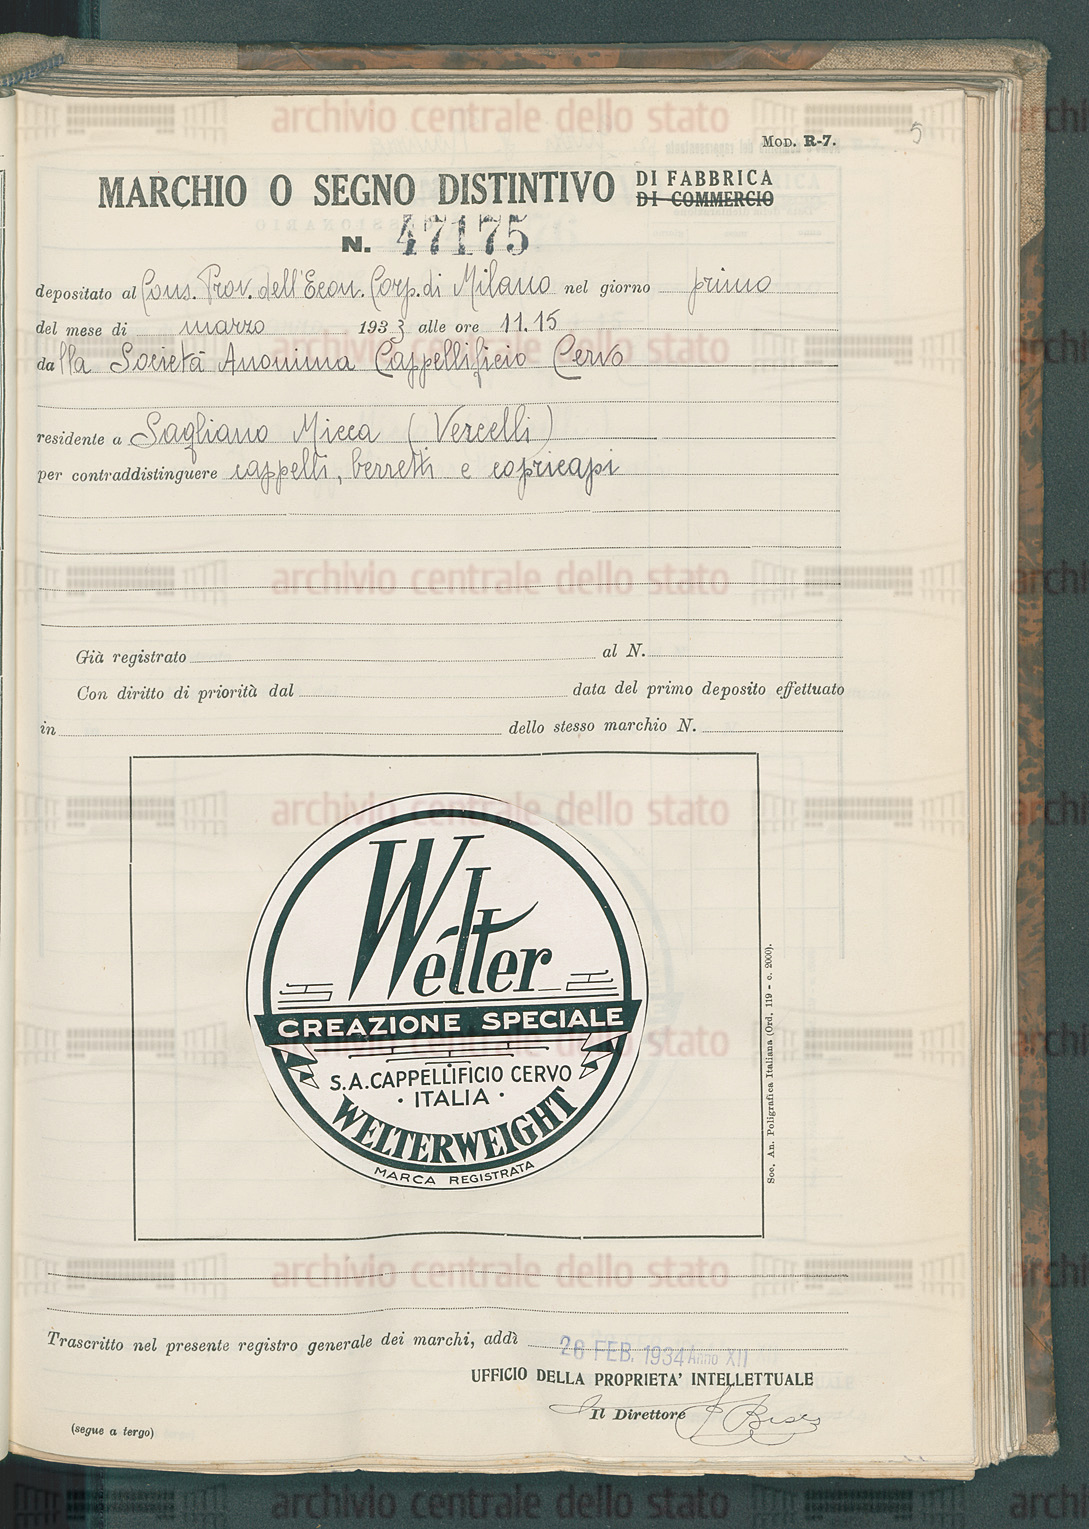 5
Mod. R-7.
MARCHIO O SEGNO DISTINTIVO DI FABBRICA
DI COMMERCIO
N. 47175
depositato al Cons. Prov. dell'Econ. Corp. di Milano nel giorno primo
del mese di marzo 1933 alle ore 11.15
dalla Società Anonima Cappellificio Cervo
residente a Sagliano Micca (Vercelli)
per contraddistinguere cappelli, berretti e copricapi
Già registrato al N.
Con diritto di priorità dal data del primo deposito effettuato
in dello stesso marchio N.
Welter
CREAZIONE SPECIALE
S.A. CAPPELLIFICIO CERVO
· ITALIA ·
WELTERWEIGHT
MARCA REGISTRATA
Soc. An. Poligrafica Italiana (Ord. 119 - c. 2000).
Trascritto nel presente registro generale dei marchi, addì 26 FEB. 1934 Anno XII
UFFICIO DELLA PROPRIETA' INTELLETTUALE
Il Direttore
(segue a tergo)
archivio centrale dello stato